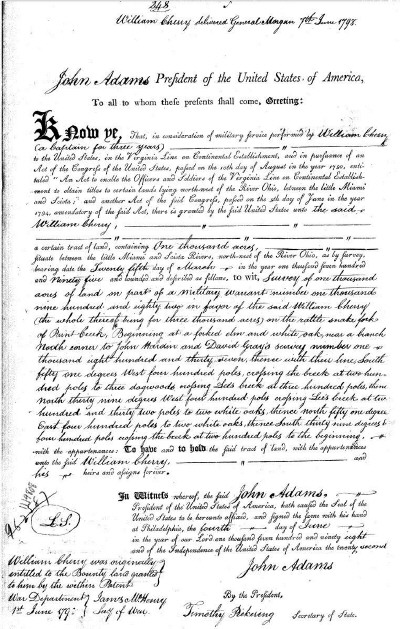 248
William Cherry delivered General Morgan 7th June 1798.
John Adams President of the United States of America,
To all to whom these presents shall come, Greeting:
Know ye, That, in consideration of military service performed by William Cherry
(a Captain for three years)
to the United States, in the Virginia Line on Continental Establishment, and in pursuance of an
Act of the Congress of the United States, passed on the 10th day of August in the year 1790, entitled
"An Act to enable the Officers and Soldiers of the Virginia Line on Continental Establishment
to obtain titles to certain lands lying northwest of the River Ohio, between the little Miami
and Sciota;" and another Act of the said Congress, passed on the 9th day of June in the year
1794, amendatory of the said Act, there is granted by the said United States unto the said
William Cherry,
a certain tract of land, containing One thousand acres,
situate between the little Miami and Sciota Rivers, north-west of the River Ohio, as by survey,
bearing date the Twenty fifth day of March in the year one thousand seven hundred
and Ninety five and bounded and described as follows, to wit, Survey of one thousand
acres of land on part of a Military Warrant number one thousand
nine hundred and eighty two in favor of the said William Cherry
(the whole thereof being for three thousand acres) on the rattle snake fork
of Paint Creek, Beginning at a forked elm and white oak near a branch
North corner to John Harden and David Gray's survey number one
thousand eight hundred and thirty seven, thence with their line South
fifty one degrees West four hundred poles, crossing the creek at two hun-
dred poles to three dogwoods crossing Lee's creek at three hundred poles, thence
north thirty nine degrees West four hundred poles crossing Lee's creek at two
hundred and thirty two poles to two white oaks, thence north fifty one degrees
East four hundred poles to two white oaks, thence South thirty nine degrees E
four hundred poles crossing the creek at two hundred poles to the beginning.
with the appurtenances: To have and to hold the said tract of land, with the appurtenances
unto the said William Cherry. and
his heirs and assigns forever.
In Witness whereof, the said John Adams.
President of the United States of America, hath caused the Seal of the
United States to be hereunto affixed, and signed the same with his hand
at Philadelphia, the fourth day of June
in the year of our Lord one thousand seven hundred and ninety eight
and of the Independence of the United States of America the twenty second
L.S.
John Adams
William Cherry was originally
entitled to the Bounty land granted
to him by the within Patent
War Department James McHenry
1st June 179 Sec'y of War.
By the President.
Timothy Pickering Secretary of State.